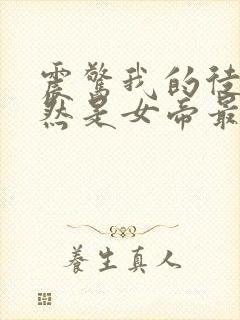 震驚我的徒
然是女帝最
養生真人